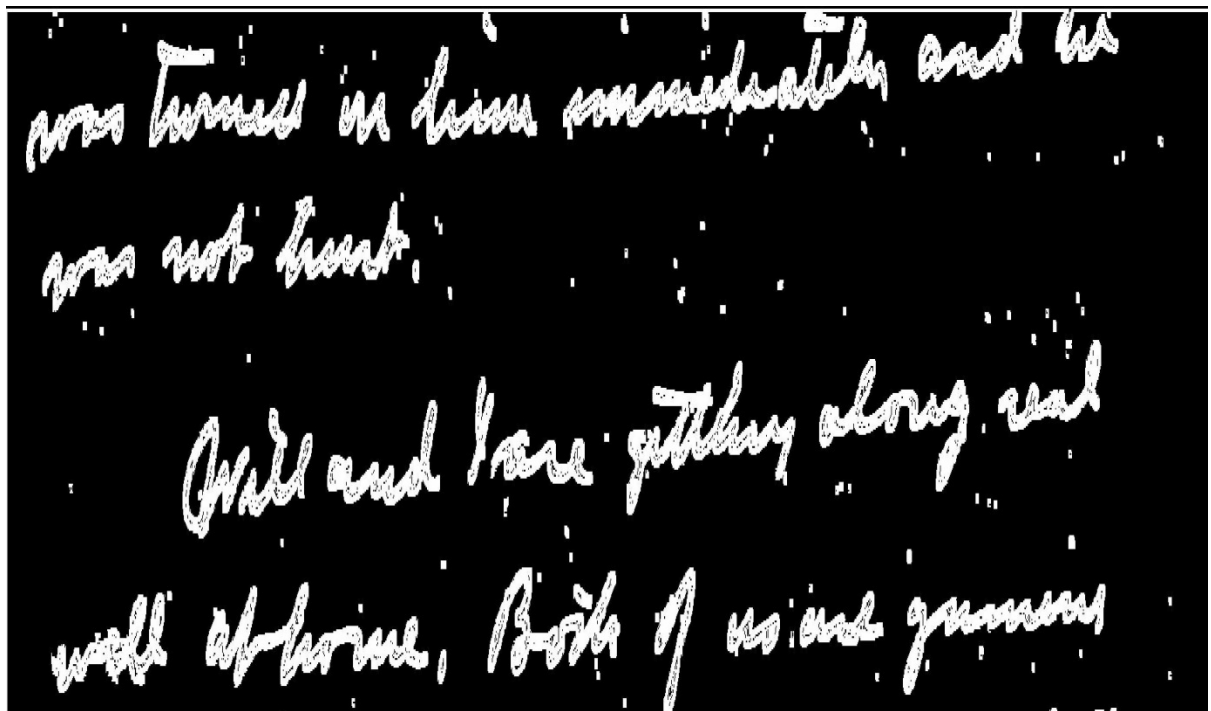 was turned in him immediately and he
was not hurt.
Orville and I are getting along real
well at home. Both of us are